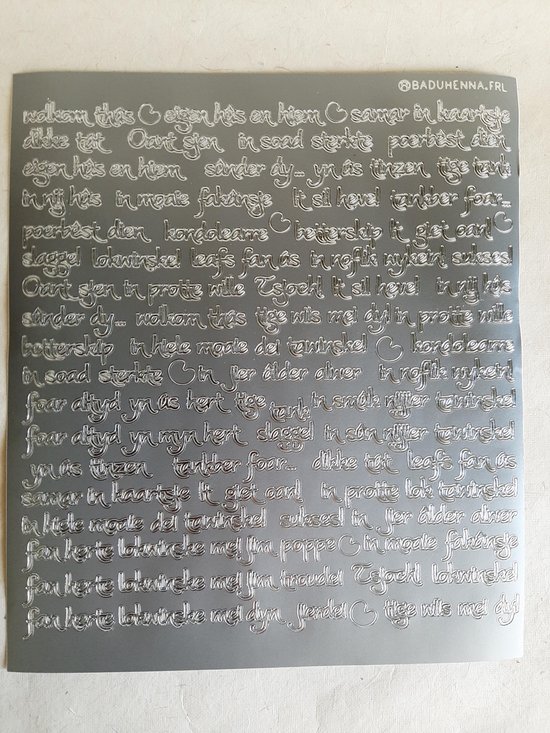 BADUHENNA.FRL
wolkom thús eigen hûs en hiem samar in kaartsje
dikke tút Oant sjen in soad sterkte poerbêst dien
eigen hûs en hiem sûnder dy... yn ús tinzen tige tank
in nij hûs in moaie fakânsje It sil heve! tankber foar...
poerbêst dien kondolearre betterskip It giet oan!
slagge! lokwinske! leafs fan ús in noflik nykein! sukses!
Oant sjen in protte wille Tsjoch! It sil heve! in nij hûs
sûnder dy... wolkom thús tige wiis mei dy! in protte wille
betterskip in hiele moaie dei tawinske! kondolearre
in soad sterkte in jier âlder aliner in noflik nykein!
foar altyd yn ús hert tige tank in smûk nijjier tawinske!
foar altyd yn myn hert slagge! in sûn nijjier tawinske!
yn ús tinzen tankber foar... dikke tút leafs fan ús
samar in kaartsje It giet oan! in protte lok tawinske!
in hiele moaie dei tawinske! sukses! in jier âlder aliner
fan herte lokwinske mei jim poppe in moaie fakânsje
fan herte lokwinske mei jim troude! Tsjoch! lokwinske!
fan herte lokwinske mei dyn jierdei tige wiis mei dy!